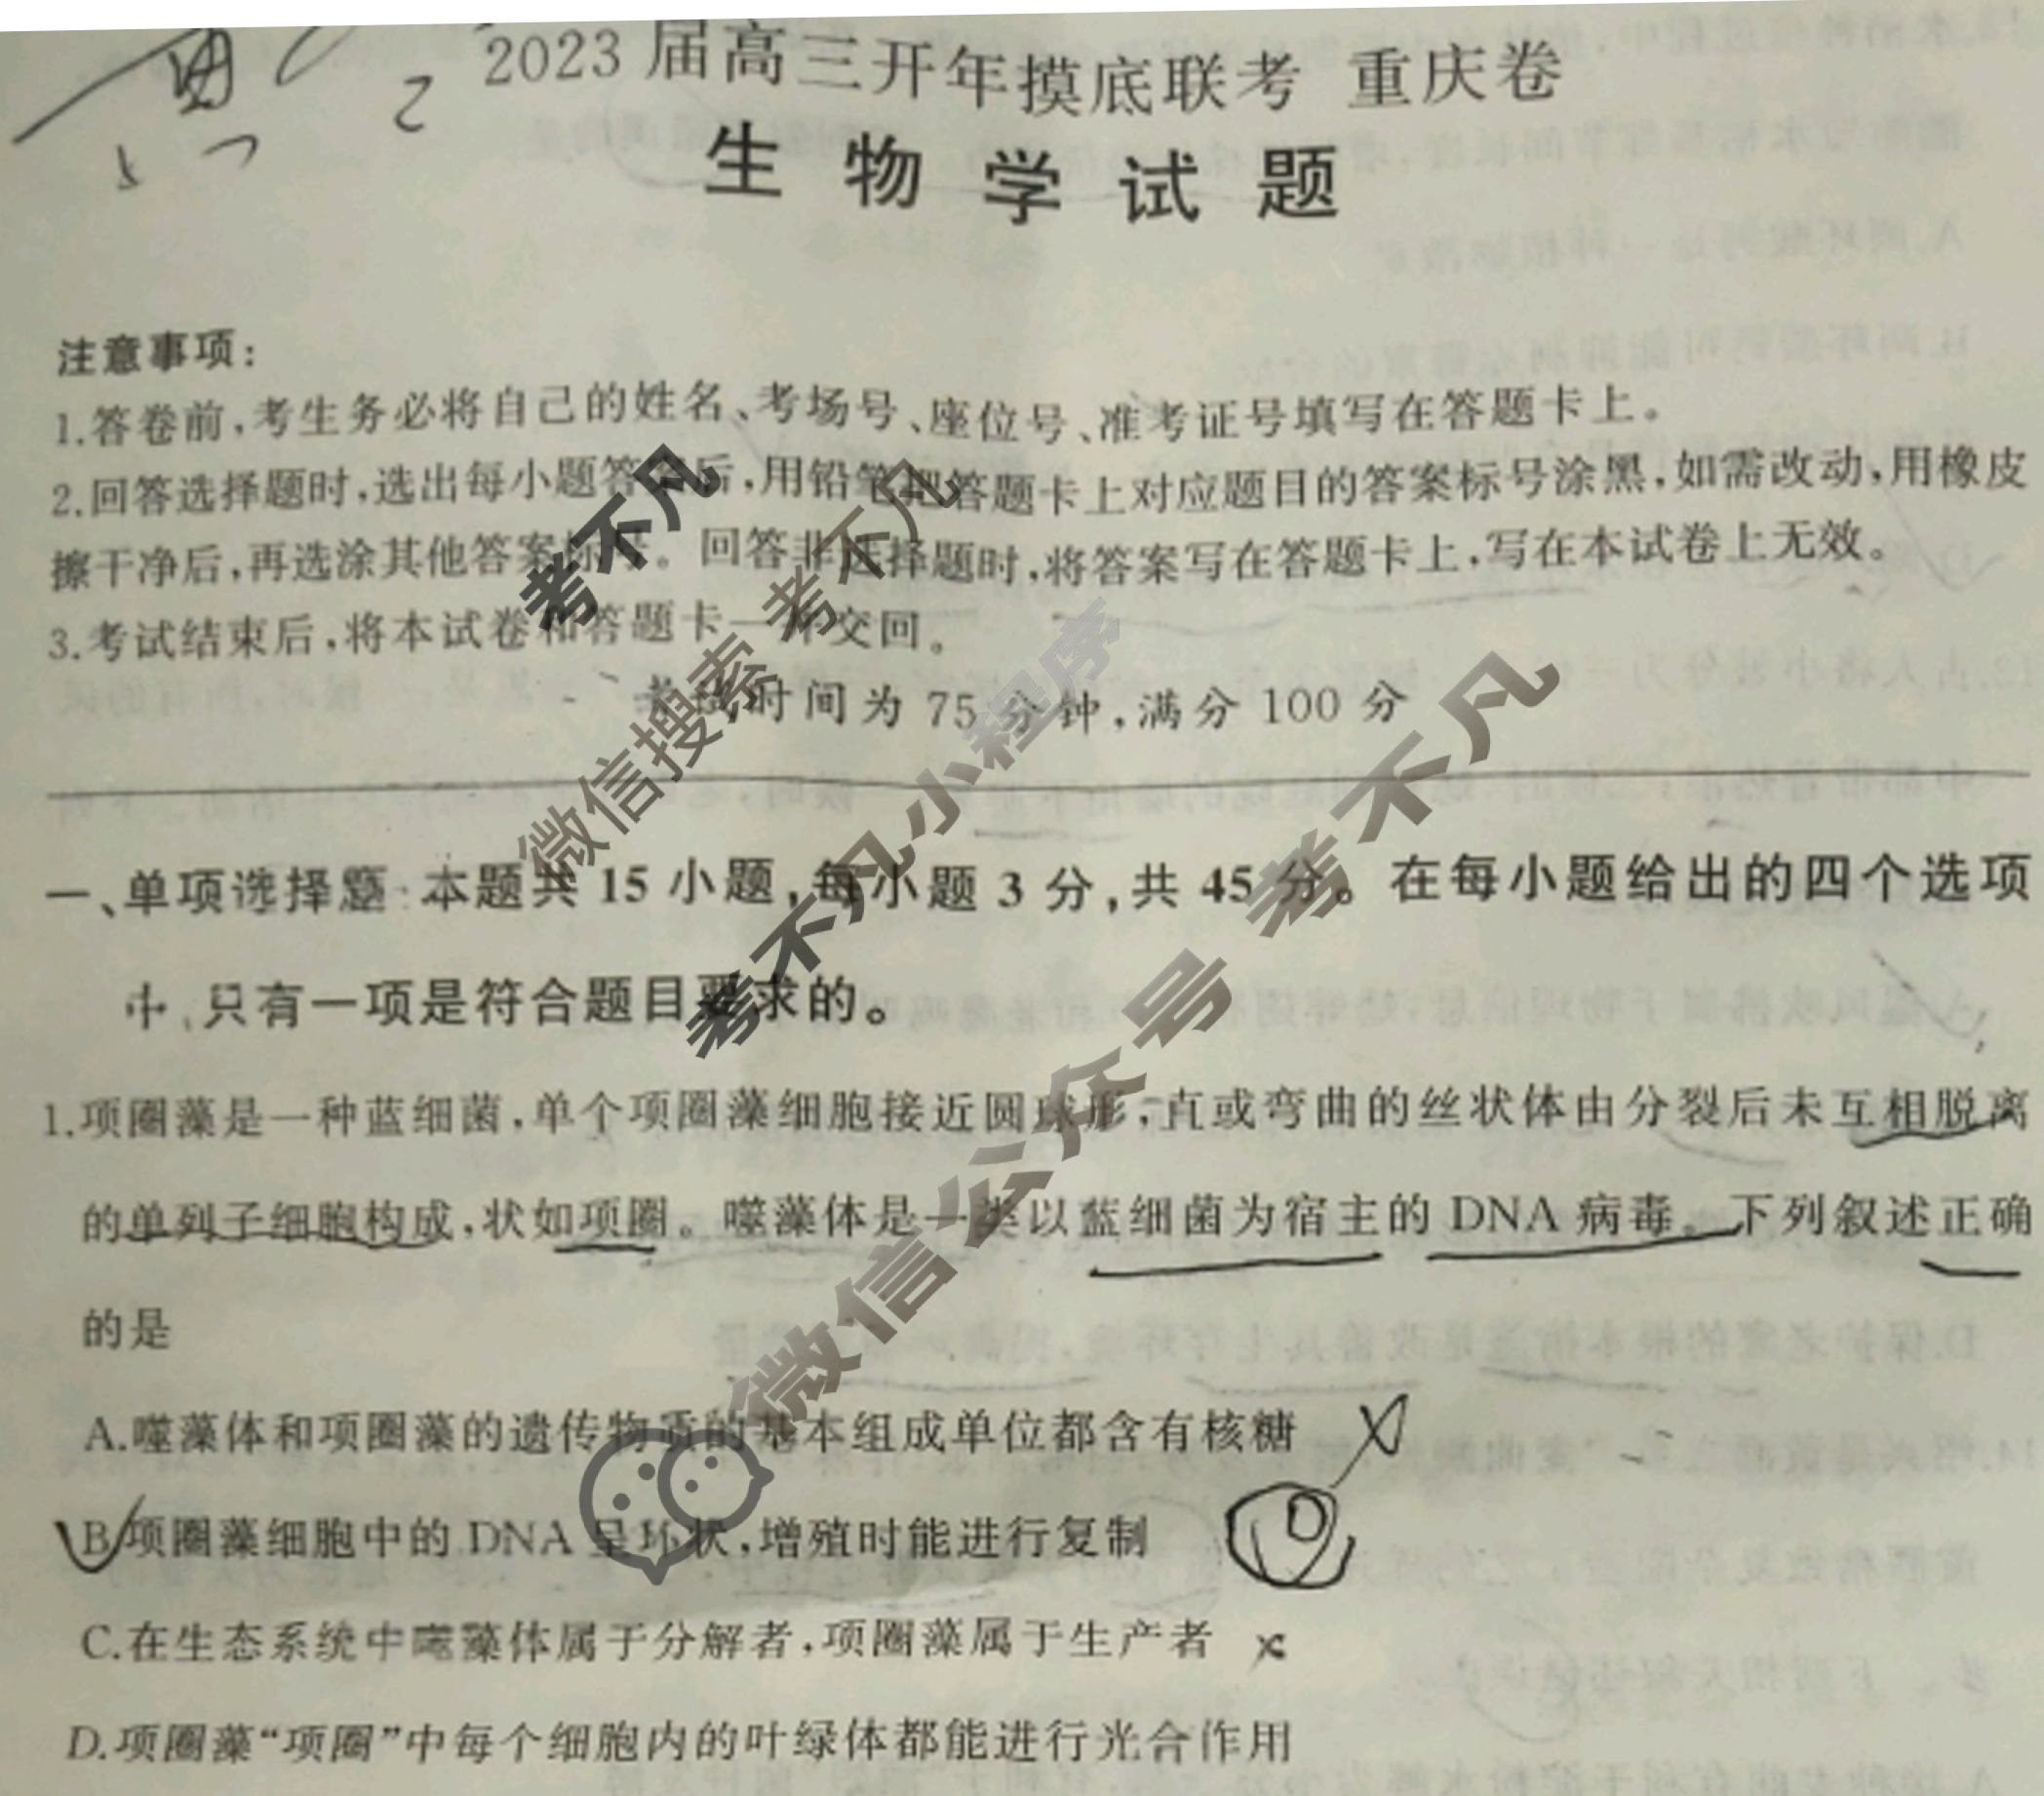 2023届高三开年摸底联考 重庆卷
生物学试题
注意事项：
1.答卷前，考生务必将自己的姓名、考场号、座位号、准考证号填写在答题卡上。
2.回答选择题时，选出每小题答案后，用铅笔把答题卡上对应题目的答案标号涂黑，如需改动，用橡皮
擦干净后，再选涂其他答案标号。回答非选择题时，将答案写在答题卡上，写在本试卷上无效。
3.考试结束后，将本试卷和答题卡一并交回。
考试时间为75分钟，满分100分
一、单项选择题：本题共15小题，每小题3分，共45分。在每小题给出的四个选项
中，只有一项是符合题目要求的。
1.项圈藻是一种蓝细菌，单个项圈藻细胞接近圆球形，直或弯曲的丝状体由分裂后未互相脱离
的单列子细胞构成，状如项圈。噬藻体是一类以蓝细菌为宿主的DNA病毒。下列叙述正确
的是
A.噬藻体和项圈藻的遗传物质的基本组成单位都含有核糖
B.项圈藻细胞中的DNA呈环状，增殖时能进行复制
C.在生态系统中噬藻体属于分解者，项圈藻属于生产者
D.项圈藻“项圈”中每个细胞内的叶绿体都能进行光合作用
考不凡
微信搜索 考不凡
考不凡小程序
微信公众号 考不凡